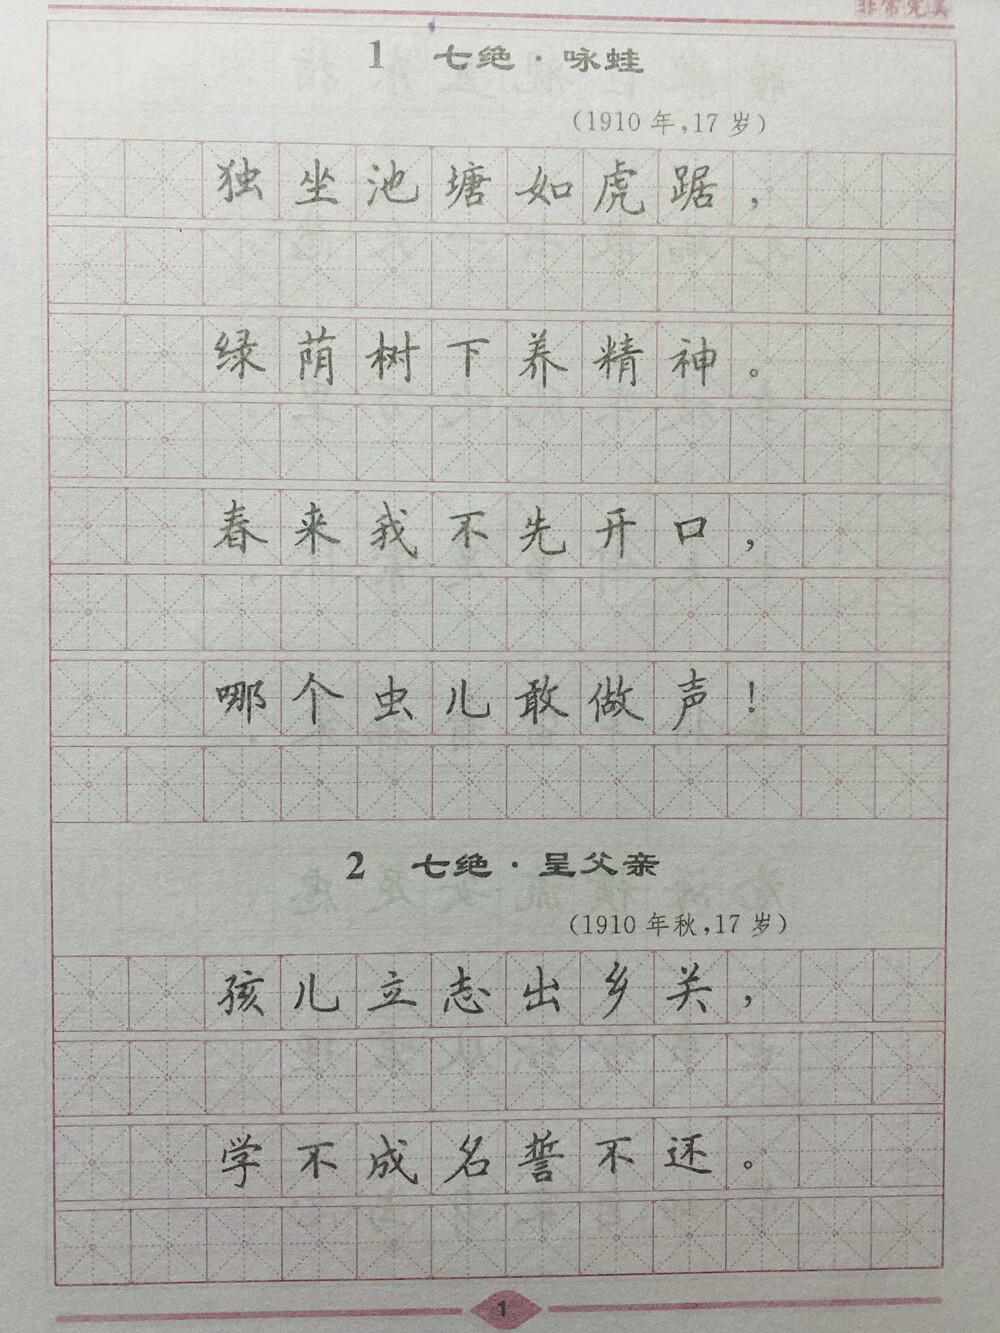 非常完美
1 七绝·咏蛙
(1910年,17岁)
独坐池塘如虎踞，
绿荫树下养精神。
春来我不先开口，
哪个虫儿敢做声！
2 七绝·呈父亲
(1910年秋,17岁)
孩儿立志出乡关，
学不成名誓不还。
1